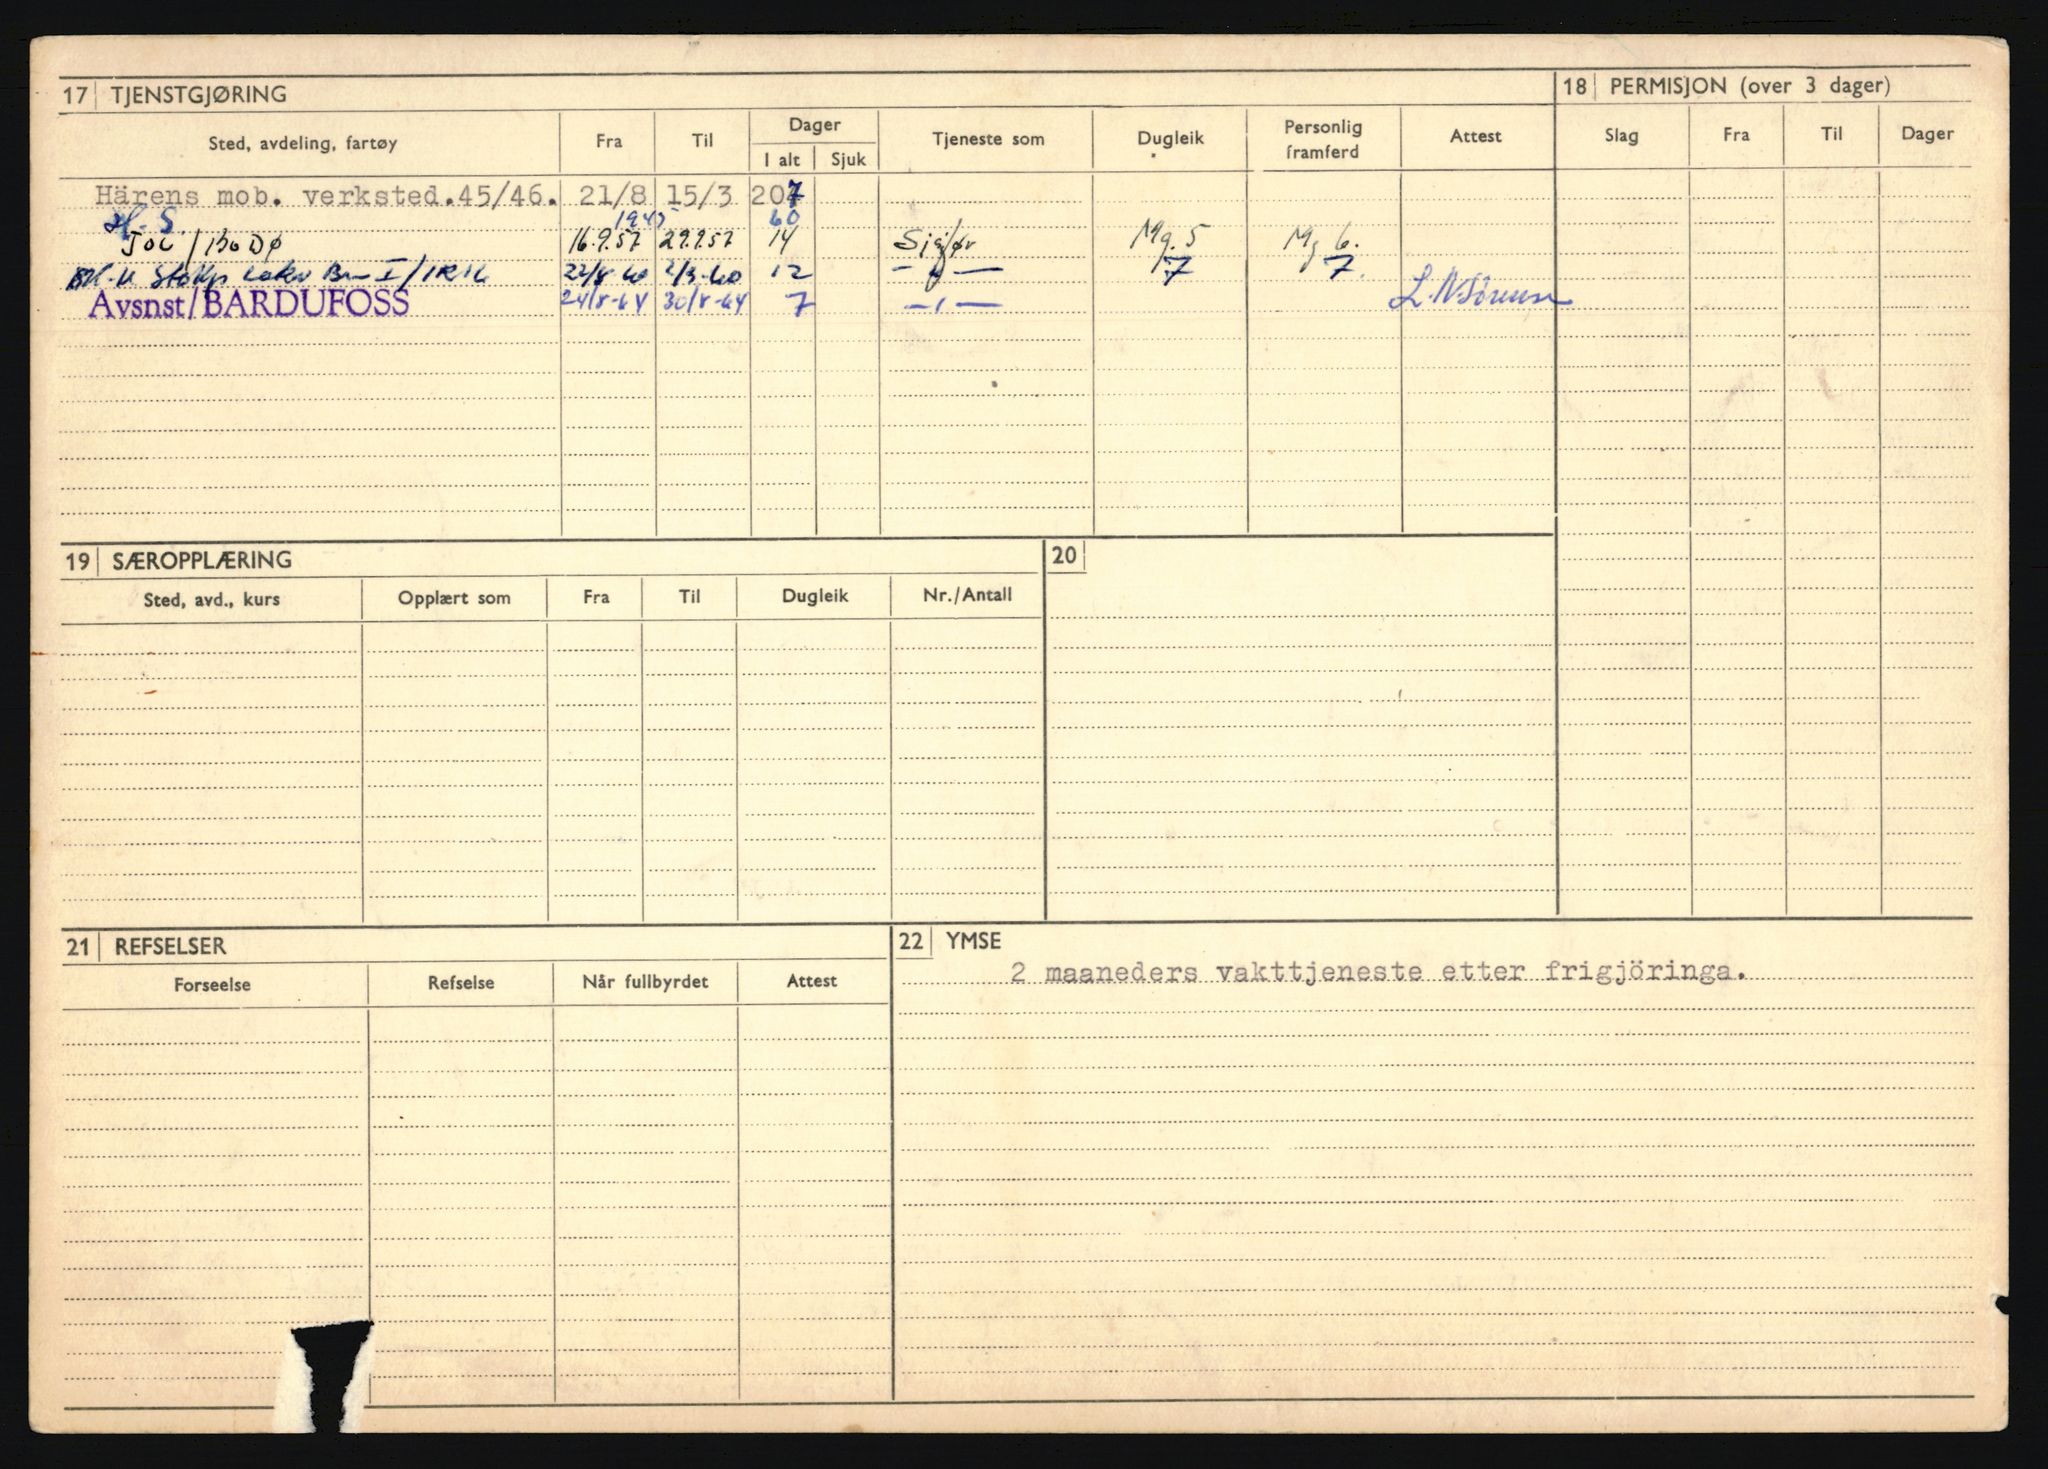 17 TJENSTGJØRING
18 PERMISJON (over 3 dager)
Sted, avdeling, fartøy Fra Til Dager I alt Sjuk Tjeneste som Dugleik Personlig framferd Attest Slag Fra Til Dager
Härens mob. verksted.45/46. 21/8 15/3 207
H.S. 1945 60
/BODØ 16.9.57 29.9.57 14 Mg. 5 Mg 6.
I/IR 16 12 — " — 7 7.
Avsnst/BARDUFOSS 24/8-64 30/8-64 7 — " —
19 SÆROPPLÆRING
20
Sted, avd., kurs Opplært som Fra Til Dugleik Nr./Antall
21 REFSELSER
22 YMSE
Forseelse Refselse Når fullbyrdet Attest
2 maaneders vakttjeneste etter frigjöringa.